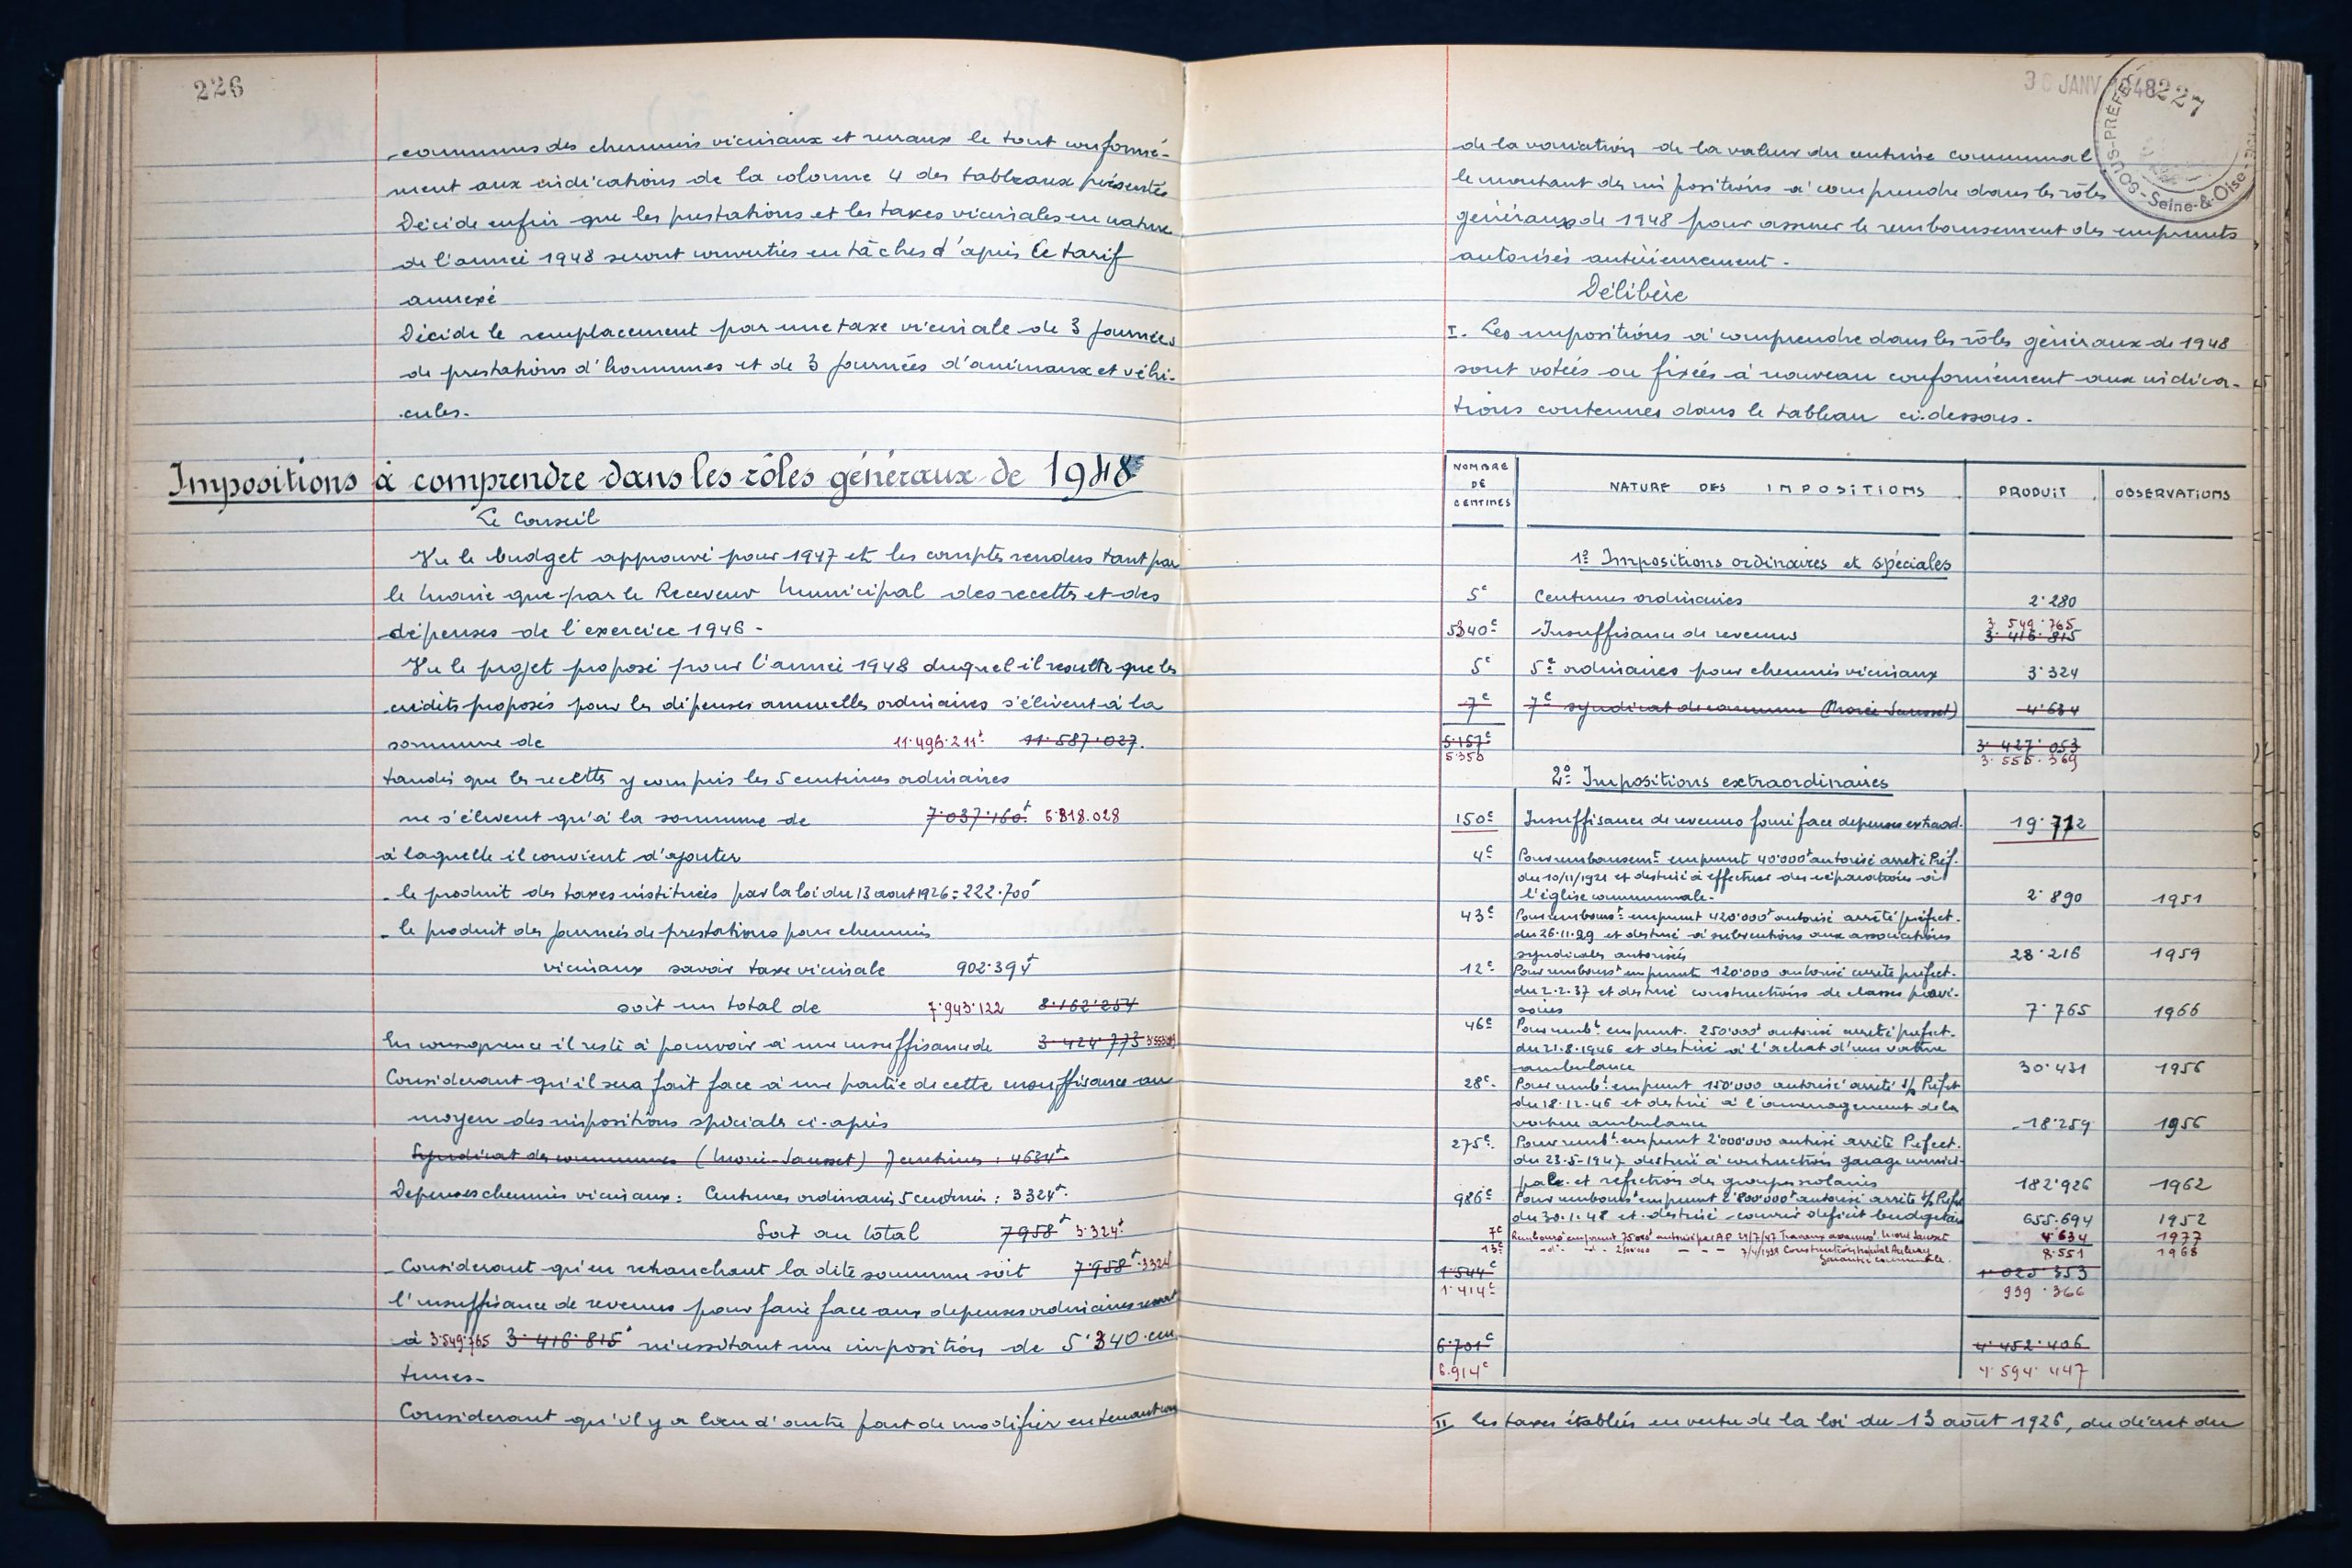 226
communes des chemins vicinaux et ruraux le tout conformé-
ment aux indications de la colonne 4 des tableaux présentés
Décide enfin que les prestations et les taxes vicinales en nature
de l'année 1948 seront converties en tâches d'après le tarif
annexé
Décide le remplacement par une taxe vicinale de 3 journées
de prestations d'hommes et de 3 journées d'animaux et véhi-
cules.
Impositions à comprendre dans les rôles généraux de 1948
Le Conseil
Vu le budget approuvé pour 1947 et les comptes rendus tant par
le Maire que par le Receveur Municipal des recettes et des
dépenses de l'exercice 1946 -
Vu le projet proposé pour l'année 1948 duquel il résulte que les
crédits proposés pour les dépenses annuelles ordinaires s'élèvent à la
somme de 11.496.211f 11.587.027.
tandis que les recettes y compris les 5 centimes ordinaires
ne s'élèvent qu'à la somme de 7.037.160f 6.818.028
à laquelle il convient d'ajouter
- le produit des taxes instituées par la loi du 13 aout 1926 = 222.700f
- le produit des journées de prestations pour chemins
vicinaux savoir taxe vicinale 902.394f
soit un total de 7.943.122 8.162.254
En conséquence il reste à pourvoir à une insuffisance de 3.424.773
Considerant qu'il sera fait face à une partie de cette insuffisance au
moyen des impositions spéciales ci-après
Syndicat de communes (Morée-Sausset) 7 centimes : 4634f.
Depenses chemins vicinaux : Centimes ordinaires 5 centimes : 3324f.
Soit au total 7958f 3.324f
- Considerant qu'en retranchant la dite somme soit 7.958f 3324f
l'insuffisance de revenus pour faire face aux depenses ordinaires ressort
à 3.549.765 3.416.815f nécessitant une imposition de 5.340 cen
times -
Considerant qu'il y a lieu d'autre part de modifier en tenant
30 JANV 1948
227
SOUS-PREFE
Seine-&-Oise
de la variation de la valeur du centime communal
le montant des impositions à comprendre dans les rôles
généraux de 1948 pour assurer le remboursement des emprunts
autorisés antérieurement.
Délibère
I. Les impositions à comprendre dans les rôles généraux de 1948
sont votées ou fixées à nouveau conformément aux indica-
tions contenues dans le tableau ci-dessous.
NOMBRE DE CENTIMES NATURE DES IMPOSITIONS PRODUIT OBSERVATIONS
1º Impositions ordinaires et spéciales
5c Centimes ordinaires 2.280
5340c Insuffisance de revenus 3.549.765
3.416.815
5c 5c ordinaires pour chemins vicinaux 3.324
7c 7c syndicat de commune (Morée Sausset) 4.634
5.157c 3.427.053
5350 3.555.369
2º Impositions extraordinaires
150c Insuffisance de revenus faire face depenses extraord. 19.712
4c Pour remboursemt emprunt 40.000f autorisé arrêté Préf.
du 10/11/1921 et destiné à effectuer des réparations à
l'église communale - 2.890 1951
43c Pour rembourst emprunt 420.000f autorisé arrêté préfect.
du 26.11.29 et destiné à subventions aux associations
syndicales autorisées 28.216 1959
12c Pour rembourst emprunt 120.000 autorisé arrêté préfect.
du 2.2.37 et destiné constructions de classes provi-
soires 7.765 1966
46c Pour rembt emprunt 250.000f autorisé arrêté préfect.
du 21.8.1946 et destiné à l'achat d'une voiture
ambulance 30.431 1956
28c Pour rembt emprunt 150.000 autorisé arrêté s/ Préfet
du 18.12.46 et destiné à l'aménagement de la
voiture ambulance 18.259 1956
275c Pour rembt emprunt 2.000.000 autorisé arrêté Préfect.
du 23-5-1947 destiné à construction garage munici-
pale et réfection des groupes scolaires 182.926 1962
986c Pour rembourst emprunt 2.800.000f autorisé arrêté s/ Préfet
du 30.1.48 et destiné couvrir deficit budgétaire 655.694 1952
7c autorisé par A.P 29/7/47 Travaux Morée Sausset 4.634 1977
13c - d° - 7/4/1938 Construction hopital Aulnay 8.551 1968
1.544c 1.025.353
1.414c 939.366
6.701c 4.452.406
6.914c 4.594.447
II Les taxes établies en vertu de la loi du 13 août 1926, du décret du